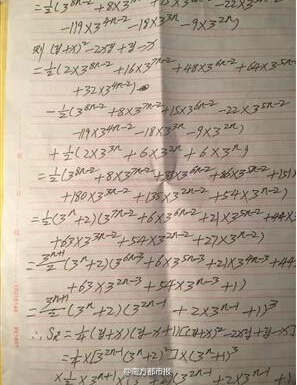 =½(3^{8n-2}+8×3^{7n-2}+15×3^{6n-2}-22×3^{5n-2}
-119×3^{4n-2}-18×3^{3n}-9×3^{2n})
则 (y+x)²-2xy+y-x
=½(2×3^{8n-2}+16×3^{7n-2}+48×3^{6n-2}+64×3^{5n-2}
+32×3^{4n-2})
-½(3^{8n-2}+8×3^{7n-2}+15×3^{6n-2}-22×3^{5n-2}
-119×3^{4n-2}-18×3^{3n}-9×3^{2n})
+½(2×3^{3n}+6×3^{2n}+6×3^{n})
=½(3^{8n-2}+8×3^{7n-2}+33×3^{6n-2}+86×3^{5n-2}+151
+180×3^{3n-2}+135×3^{2n-2}+54×3^{n-2})
=½(3^{n}+2)(3^{7n-2}+6×3^{6n-2}+21×3^{5n-2}+44×3
+63×3^{3n-2}+54×3^{2n-2}+27×3^{n-2})
(3^{n}+2)(3^{6n-3}+6×3^{5n-3}+21×3^{4n-3}+44
+63×3^{2n-3}+54×3^{n-3}+1)
(3^{n}+2)(3^{2n-1}+2×3^{n-1}+1)³
∴ =¼(y+x)(y-x+1)[(y+x)²-2xy+y-x]
=¼×[3^{2n-1}(3^{n}+2)²]×(3^{n}+1)³
×½×3^{n+1}×(3^{n}+2)(3^{2n-1}+2×3^{n-1}+1)
@南方都市报